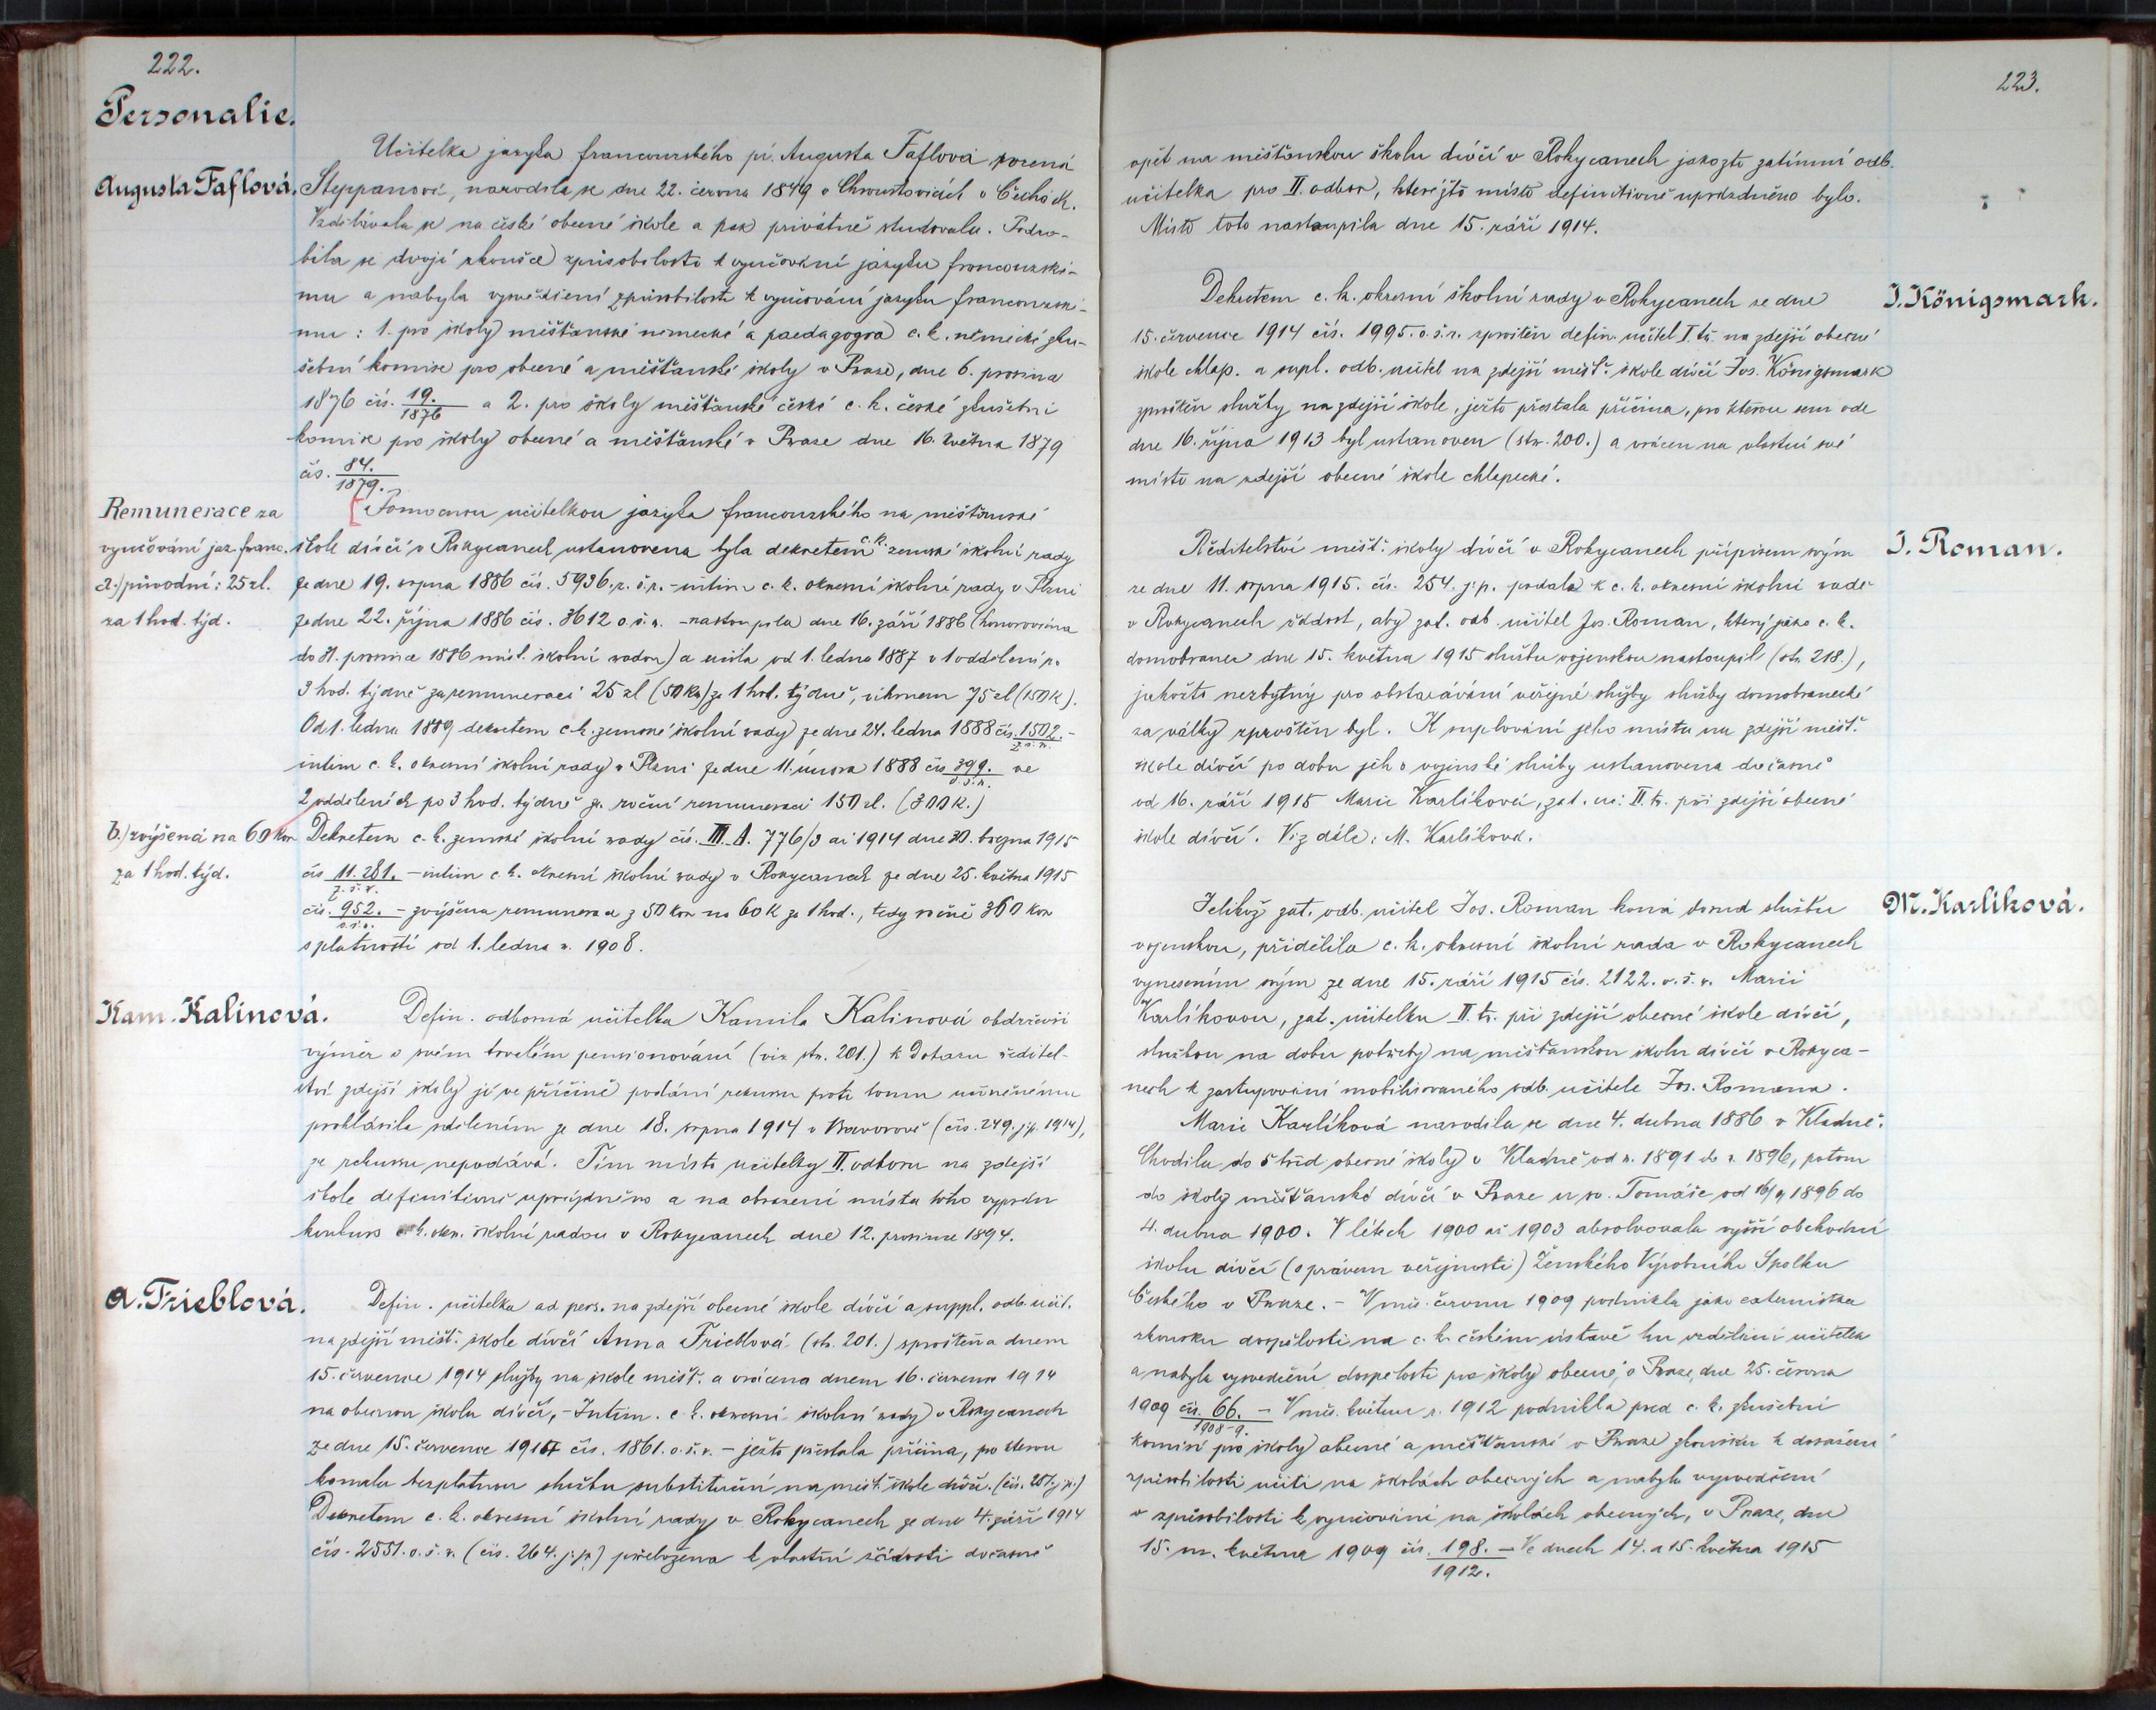 222.
Personalie.
Augusta Taflová.
Učitelka jazyka francouzského pí. Augusta Taflová rozená
Steppanová, narodila se dne 22. června 1849 v Chroustovicích v Čechách.
Vzdělávala se na české obecné škole a pak privátně studovala. Podro-
bila se dvojí zkoušce způsobilosti k vyučování jazyku francouzské-
mu a nabyla vysvědčení způsobilosti k vyučování jazyku francouzské-
mu: 1. pro školy měšťanské německé a paedagogia c. k. německé zku-
šební komise pro obecné a měšťanské školy v Praze, dne 6. prosince
1876 čís. 19./1876 a 2. pro školy měšťanské české c. k. české zkušební
komise pro školy obecné a měšťanské v Praze dne 16. května 1879
čís. 84./1879.
Remunerace za
vyučování jaz. franc.
a.) původní: 25 zl.
za 1 hod. týd.
Pomocnou učitelkou jazyka francouzského na měšťanské
škole dívčí v Rokycanech ustanovena byla dekretem c. k. zemské školní rady
ze dne 19. srpna 1886 čís. 5936. z. š. r. - intim. c. k. okresní školní rady v Plzni
ze dne 22. října 1886 čís. 3612 o. š. r. - nastoupila dne 16. září 1886 (honorována
do 31. prosince 1886 míst. školní radou) a učila od 1. ledna 1887 v 1 oddělení po
3 hod. týdně za remuneraci 25 zl (50 K) za 1 hod. týdně, úhrnem 75 zl (150 K).
Od 1. ledna 1889 dekretem c. k. zemské školní rady ze dne 24. ledna 1888 čís. 1502./z. š. r. -
intim c. k. okresní školní rady v Plzni ze dne 11. února 1888 čís 399./o. š. r. ve
2 odděleních po 3 hod. týdně za roční remuneraci 150 zl. (300 K.)
b.) zvýšená na 60 kor
za 1 hod. týd.
Dekretem c. k. zemské školní rady čís. III. A. 776/3 ai 1914 dne 30. března 1915
čís 11.281./z. š. r. - intim c. k. okresní školní rady v Rokycanech ze dne 25. května 1915
čís. 952./o. š. r. - zvýšena remunerace z 50 kor na 60 K za 1 hod., tedy ročně 360 kor
s platností od 1. ledna r. 1908.
Kam. Kalinová.
Defin. odborná učitelka Kamila Kalinová obdrževši
výměr o svém trvalém pensionování (viz str. 201.) k dotazu ředitel-
ství zdejší školy jí ve příčině podání rekursu proti tomu učiněnému
prohlásila sdělením ze dne 18. srpna 1914 v Bavorově (čís. 249. j. p. 1914),
že rekursu nepodává. Tím místo učitelky II. odboru na zdejší
škole definitivně uprázdněno a na obsazení místa toho vypsán
konkurs c. k. okr. školní radou v Rokycanech dne 12. prosince 1894.
A. Trieblová.
Defin. učitelka ad pers. na zdejší obecné škole dívčí a suppl. odb. učit.
na zdejší měšť. škole dívčí Anna Trieblová (str. 201.) sproštěna dnem
15. července 1914 služby na škole měšť. a vrácena dnem 16. července 1914
na obecnou školu dívčí, - Intim. c. k. okresní školní rady v Rokycanech
ze dne 15. července 1914 čís. 1861. o. š. r. - ježto přestala příčina, pro kterou
konala bezplatnou službu substituční na měšť. škole dívčí.
Dekretem c. k. okresní školní rady v Rokycanech ze dne 4. září 1914
čís. 2551. o. š. r. (čís. 264. j. p.) přeložena k vlastní žádosti dočasně
223.
opět na měšťanskou školu dívčí v Rokycanech jakožto zatímní odb.
učitelka pro II. odbor, kteréžto místo definitivně uprázdněno bylo.
Místo toto nastoupila dne 15. září 1914.
J. Königsmark.
Dekretem c. k. okresní školní rady v Rokycanech ze dne
15. července 1914 čís. 1995. o. š. r. sproštěn defin. učitel I. tř. na zdejší obecné
škole chlap. a supl. odb. učitel na zdejší měšť. škole dívčí Jos. Königsmark
zproštěn služby na zdejší škole, ježto přestala příčina, pro kterou sem ode
dne 16. října 1913 byl ustanoven (str. 200.) a vrácen na vlastní své
místo na zdejší obecné škole chlapecké.
J. Roman.
Ředitelství měšť. školy dívčí v Rokycanech přípisem svým
ze dne 11. srpna 1915. čís. 254. j. p. podala k c. k. okresní školní radě
v Rokycanech žádost, aby zat. odb. učitel Jos. Roman, který jako c. k.
domobranec dne 15. května 1915 službu vojenskou nastoupil (str. 218.),
jakožto nezbytný pro obstarávání veřejné služby služby domobranecké
za války zproštěn byl. K suplování jeho místa na zdejší měšť.
škole dívčí po dobu jeho vojenské služby ustanovena dočasně
od 16. září 1915 Marie Karlíková, zat. uč. II. tř. při zdejší obecné
škole dívčí. Viz dále: M. Karlíková.
M. Karlíková.
Jelikož zat. odb. učitel Jos. Roman koná dosud službu
vojenskou, přidělila c. k. okresní školní rada v Rokycanech
vynesením svým ze dne 15. září 1915 čís. 2122. o. š. r. Marii
Karlíkovou, zat. učitelku II. tř. při zdejší obecné škole dívčí,
službou na dobu potřeby na měšťanskou školu dívčí v Rokyca-
nech k zastupování mobilisovaného odb. učitele Jos. Romana.
Marie Karlíková narodila se dne 4. dubna 1886 v Kladně.
Chodila do 5 tříd. obecné školy v Kladně od r. 1891 do r. 1896, potom
do školy měšťanské dívčí v Praze u sv. Tomáše od 16/9 1896 do
4. dubna 1900. V létech 1900 až 1903 absolvovala vyšší obchodní
školu dívčí (s právem veřejnosti) Ženského Výrobního Spolku
Českého v Praze. - V měs. červnu 1909 podnikla jako externistka
zkoušku dospělosti na c. k. českém ústavě ku vzdělání učitelek
a nabyla vysvědčení dospělosti pro školy obecné, v Praze, dne 25. června
1909 čís. 66./1908-9. - V měs. květnu r. 1912 podnikla před c. k. zkušební
komisí pro školy obecné a měšťanské v Praze zkoušku k dosažení
způsobilosti učiti na školách obecných a nabyla vysvědčení
o způsobilosti k vyučování na školách obecných, v Praze, dne
15. m. května 1909 čís. 198./1912. - Ve dnech 14. a 15. května 1915